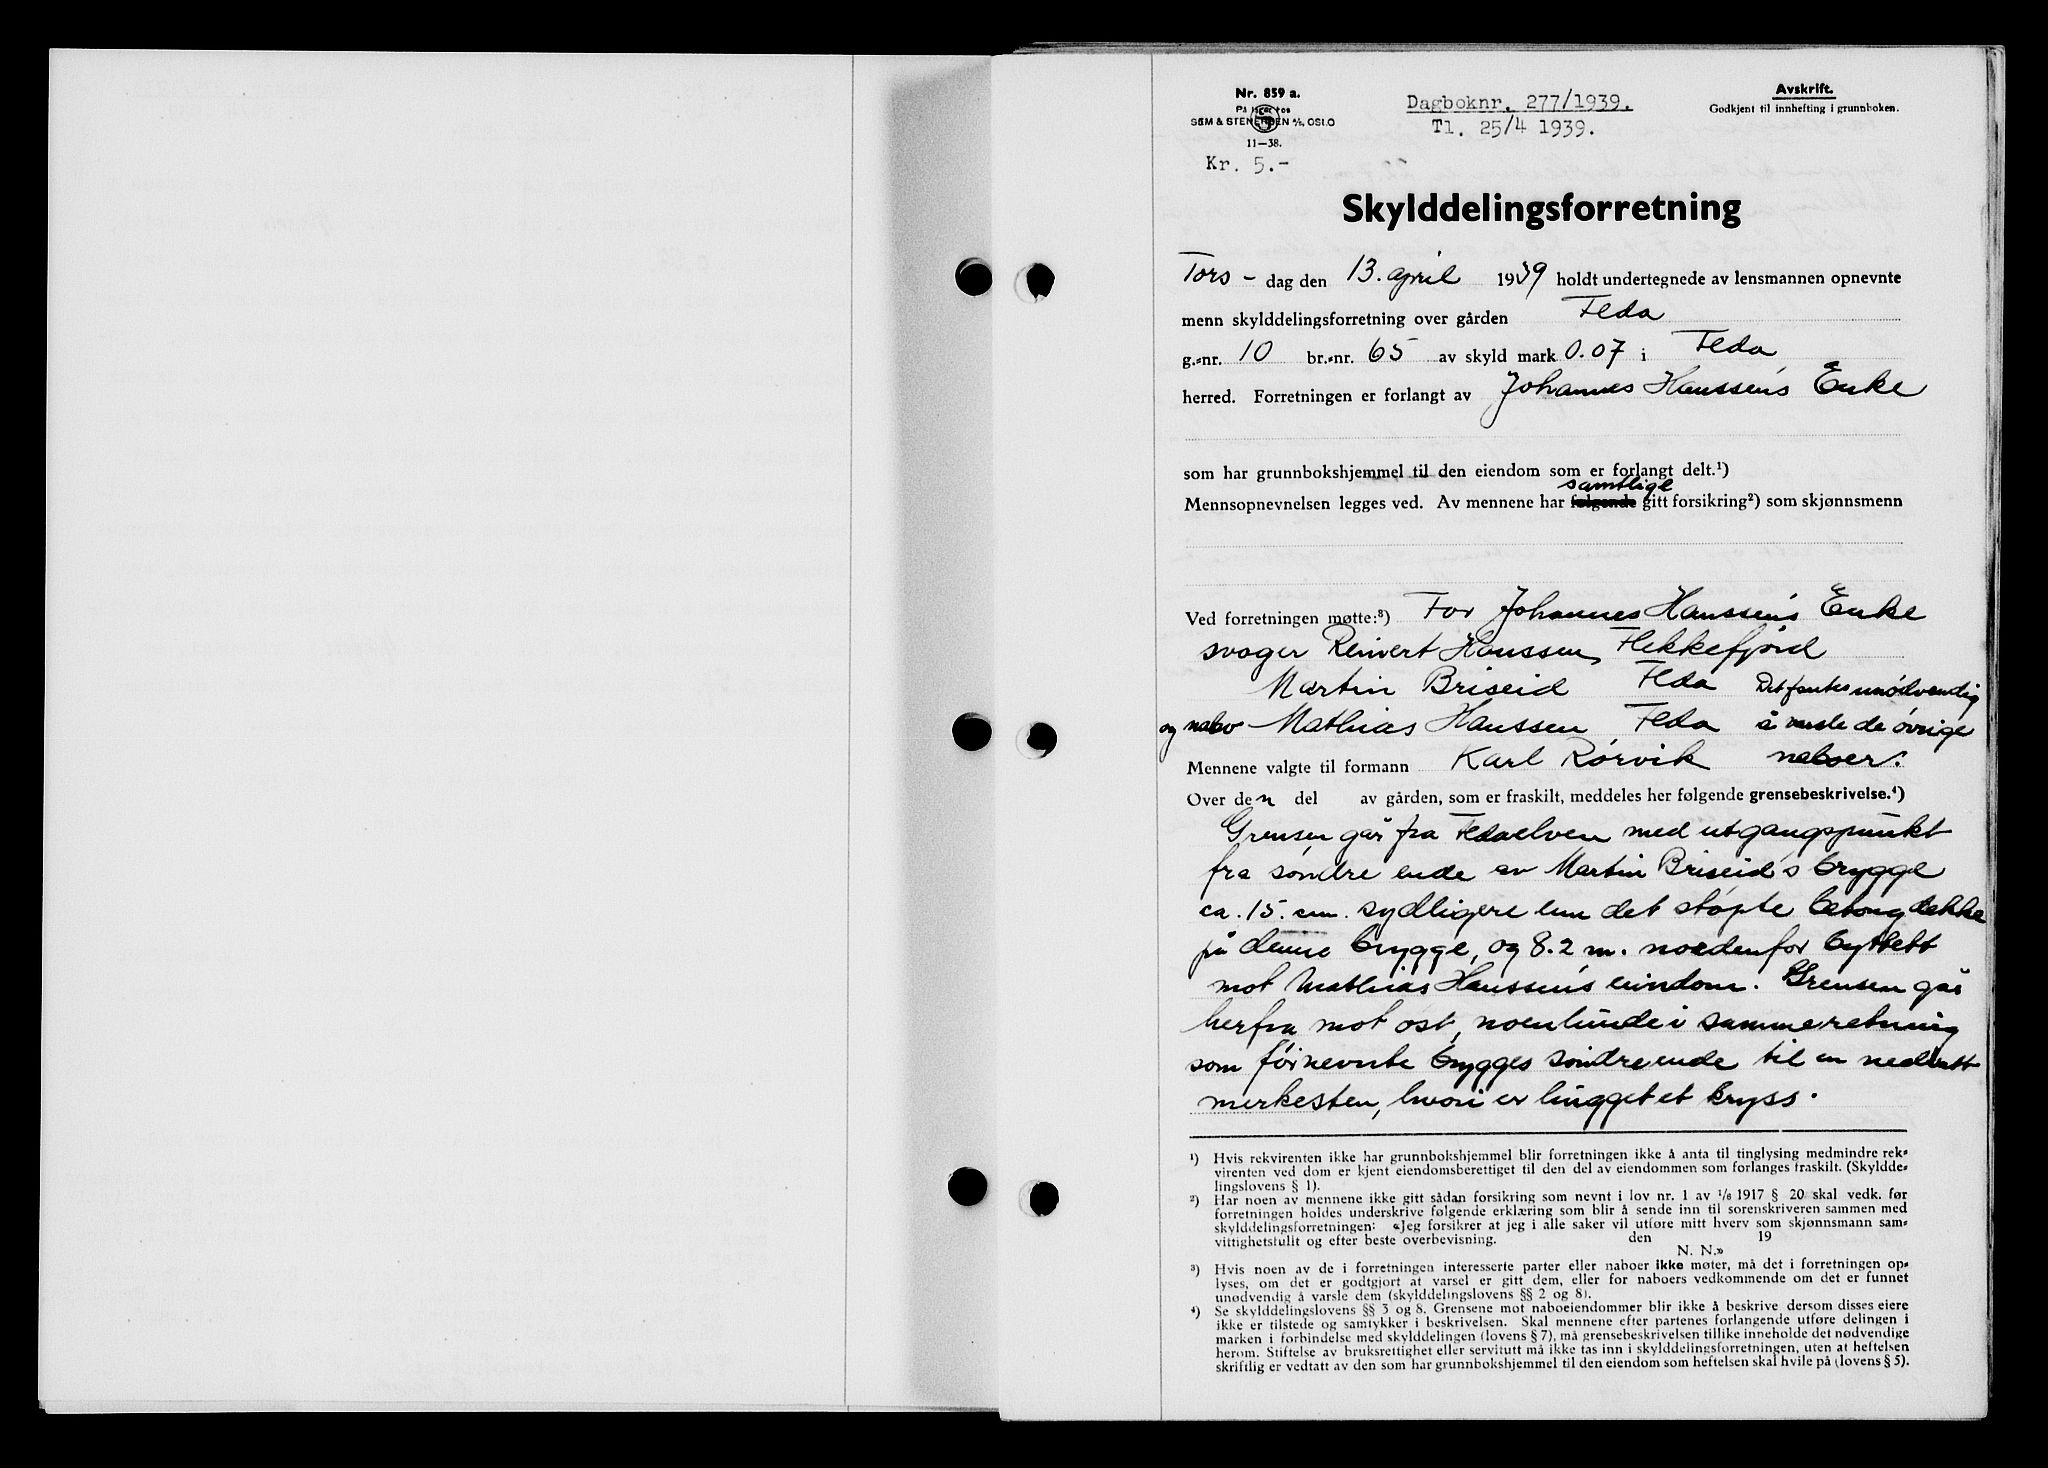 Nr. 859 a.
På lager hos
SEM & STENERSEN A/S, OSLO
11—38.
Kr. 5.-
Dagboknr. 277/1939.
Tl. 25/4 1939.
Avskrift.
Godkjent til innhefting i grunnboken.
Skylddelingsforretning
Tors - dag den 13. april 1939 holdt undertegnede av lensmannen opnevnte
menn skylddelingsforretning over gården Feda
g.-nr. 10 br.-nr. 65 av skyld mark 0.07 i Feda
herred. Forretningen er forlangt av Johannes Hanssens Enke
som har grunnbokshjemmel til den eiendom som er forlangt delt.¹)
samtlige
Mennsopnevnelsen legges ved. Av mennene har følgende gitt forsikring²) som skjønnsmenn
Ved forretningen møtte:³) For Johannes Hanssen's Enke
svoger Reinert Hanssen, Flekkefjord
Martin Briseid Feda Det fantes unødvendig
og nabo Mathias Hanssen Feda å varsle de øvrige
Mennene valgte til formann Karl Rørvik naboer.
Over den del av gården, som er fraskilt, meddeles her følgende grensebeskrivelse.⁴)
Grensen går fra Fedaelven med utgangspunkt
fra søndre ende av Martin Briseid's brygge
ca. 15. cm. sydligere enn det støpte betongdekke
på denne brygge, og 8.2 m. nordenfor byttett
mot Mathias Hanssen's eiendom. Grensen går
herfra mot ost, noenlunde i samme retning
som førnevnte brygges søndre ende til en nedsatt
merkesten, hvori er hugget et kryss.
¹) Hvis rekvirenten ikke har grunnbokshjemmel blir forretningen ikke å anta til tinglysing medmindre rek-
virenten ved dom er kjent eiendomsberettiget til den del av eiendommen som forlanges fraskilt. (Skyldde-
lingslovens § 1).
²) Har noen av mennene ikke gitt sådan forsikring som nevnt i lov nr. 1 av 1/6 1917 § 20 skal vedk. før
forretningen holdes underskrive følgende erklæring som blir å sende inn til sorenskriveren sammen med
skylddelingsforretningen: «Jeg forsikrer at jeg i alle saker vil utføre mitt hverv som skjønnsmann sam-
vittighetsfullt og efter beste overbevisning. den 19
N. N.»
³) Hvis noen av de i forretningen interesserte parter eller naboer ikke møter, må det i forretningen op-
lyses, om det er godtgjort at varsel er gitt dem, eller for naboers vedkommende om det er funnet
unødvendig å varsle dem (skylddelingslovens §§ 2 og 8).
⁴) Se skylddelingslovens §§ 3 og 8. Grensene mot naboeiendommer blir ikke å beskrive dersom disses eiere
ikke er tilstede og samtykker i beskrivelsen. Skal mennene efter partenes forlangende utføre delingen i
marken i forbindelse med skylddelingen (lovens § 7), må grensebeskrivelsen tillike inneholde det nødvendige
herom. Stiftelse av bruksrettighet eller servitutt må ikke tas inn i skylddelingsforretningen, uten at heftelsen
skriftlig er vedtatt av den som har grunnbokshjemmel til den eiendom som heftelsen skal hvile på (lovens § 5).